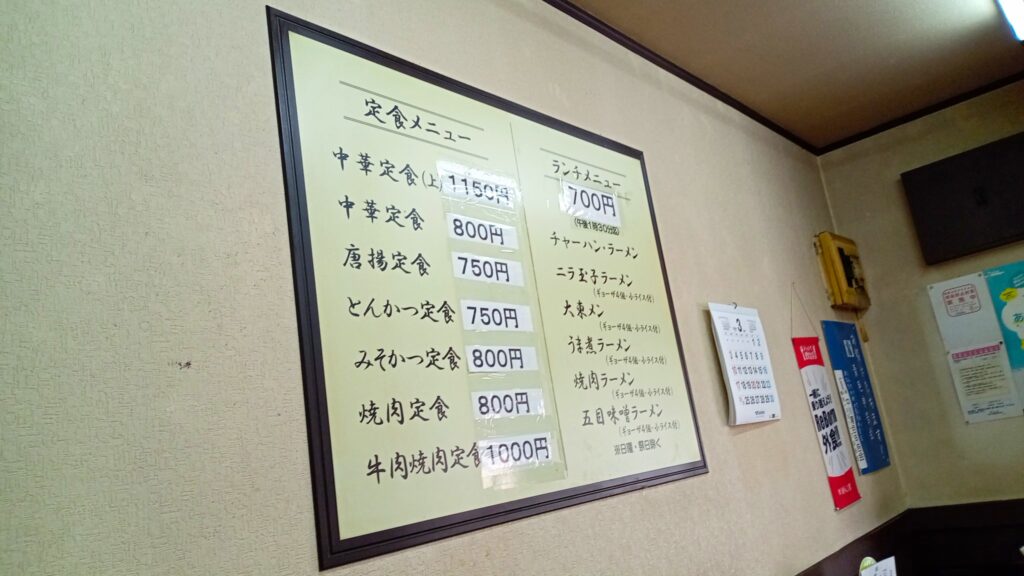 定食メニュー
中華定食(上) 1150円
中華定食 800円
唐揚定食 750円
とんかつ定食 750円
みそかつ定食 800円
焼肉定食 800円
牛肉焼肉定食 1000円
ランチメニュー
700円
(午後1時30分迄)
チャーハン・ラーメン
ニラ玉子ラーメン
(ギョーザ4個・小ライス付)
大東メン
(ギョーザ4個・小ライス付)
うま煮ラーメン
(ギョーザ4個・小ライス付)
焼肉ラーメン
(ギョーザ4個・小ライス付)
五目味噌ラーメン
(ギョーザ4個・小ライス付)
※日曜・祭日除く
3
1 2
3 4 5 6 7 8 9
10 11 12 13 14 15 16
17 18 19 20 21 22 23
25 26 27 28 29 30
ReBorn
外食!
あ